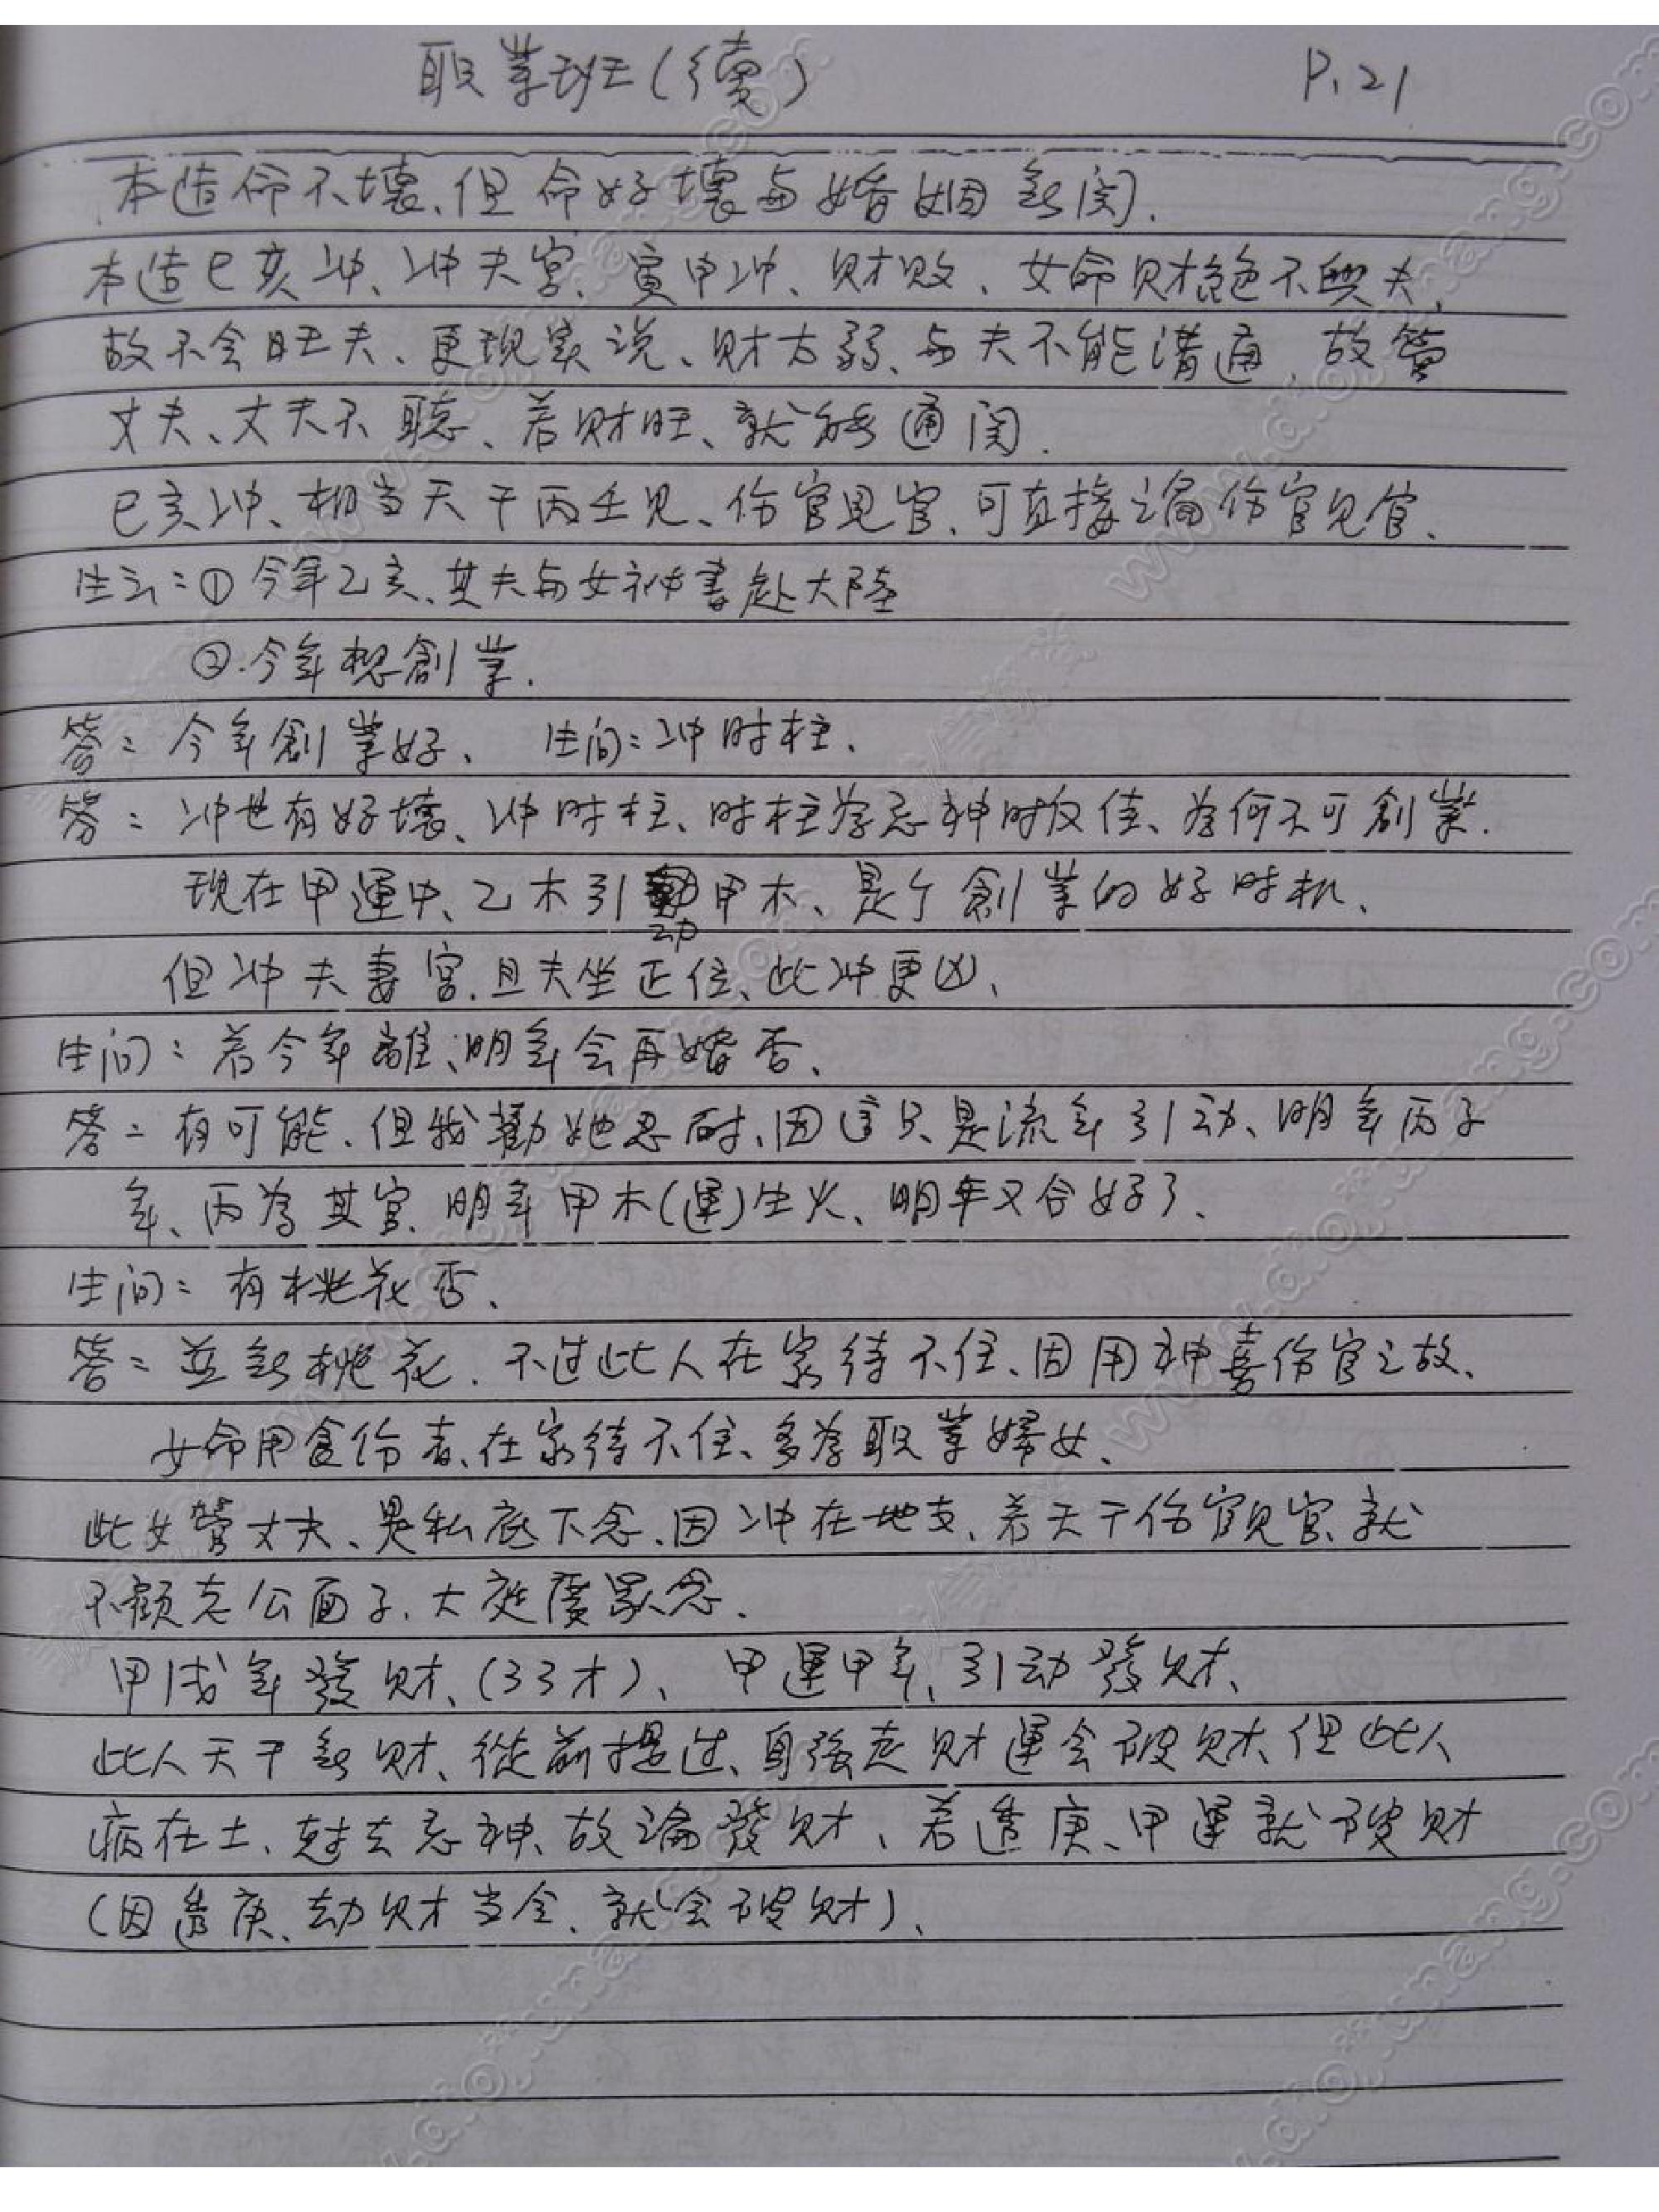 职業班(續) P.21
本造命不壞、但命好壞与婚姻無関.
本造巳亥冲、冲夫宮、寅申冲、财败、女命财絕不興夫,
故不会旺夫、更现実说、财方弱、与夫不能溝通、故管
丈夫、丈夫不聽、若财旺、就能通関.
巳亥冲、相当天干丙壬见、伤官見官、可直接論伤官见官、
生云:①今年乙亥、其夫与女秘書赴大陸
②.今年想創業.
答:今年創業好、 生问:冲时柱.
答:冲也有好壞、冲时柱、时柱為忌神时反佳、為何不可創業.
现在甲運中、乙木引动甲木、是个創業的好时机、
但冲夫妻宮、且夫坐正位、此冲更凶、
生问:若今年離、明年会再婚否、
答:有可能、但我勸她忍耐、因這只是流年引动、明年丙子
年、丙為其官、明年甲木(運)生火、明年又合好了.
生问:有桃花否、
答:並無桃花、不过此人在家待不住、因用神喜伤官之故、
女命用食伤者、在家待不住、多為职業婦女、
此女管丈夫、是私底下念、因冲在地支、若天干伤官见官、就
不顧老公面子、大庭廣眾念.
甲戌年發财、(33才)、甲運甲年、引动發财、
此人天干無财、從前提过、身強走财運会破财、但此人
病在土、尅去忌神、故論發财、若透庚、甲運就破财
(因透庚、劫财当令、就会破财)、